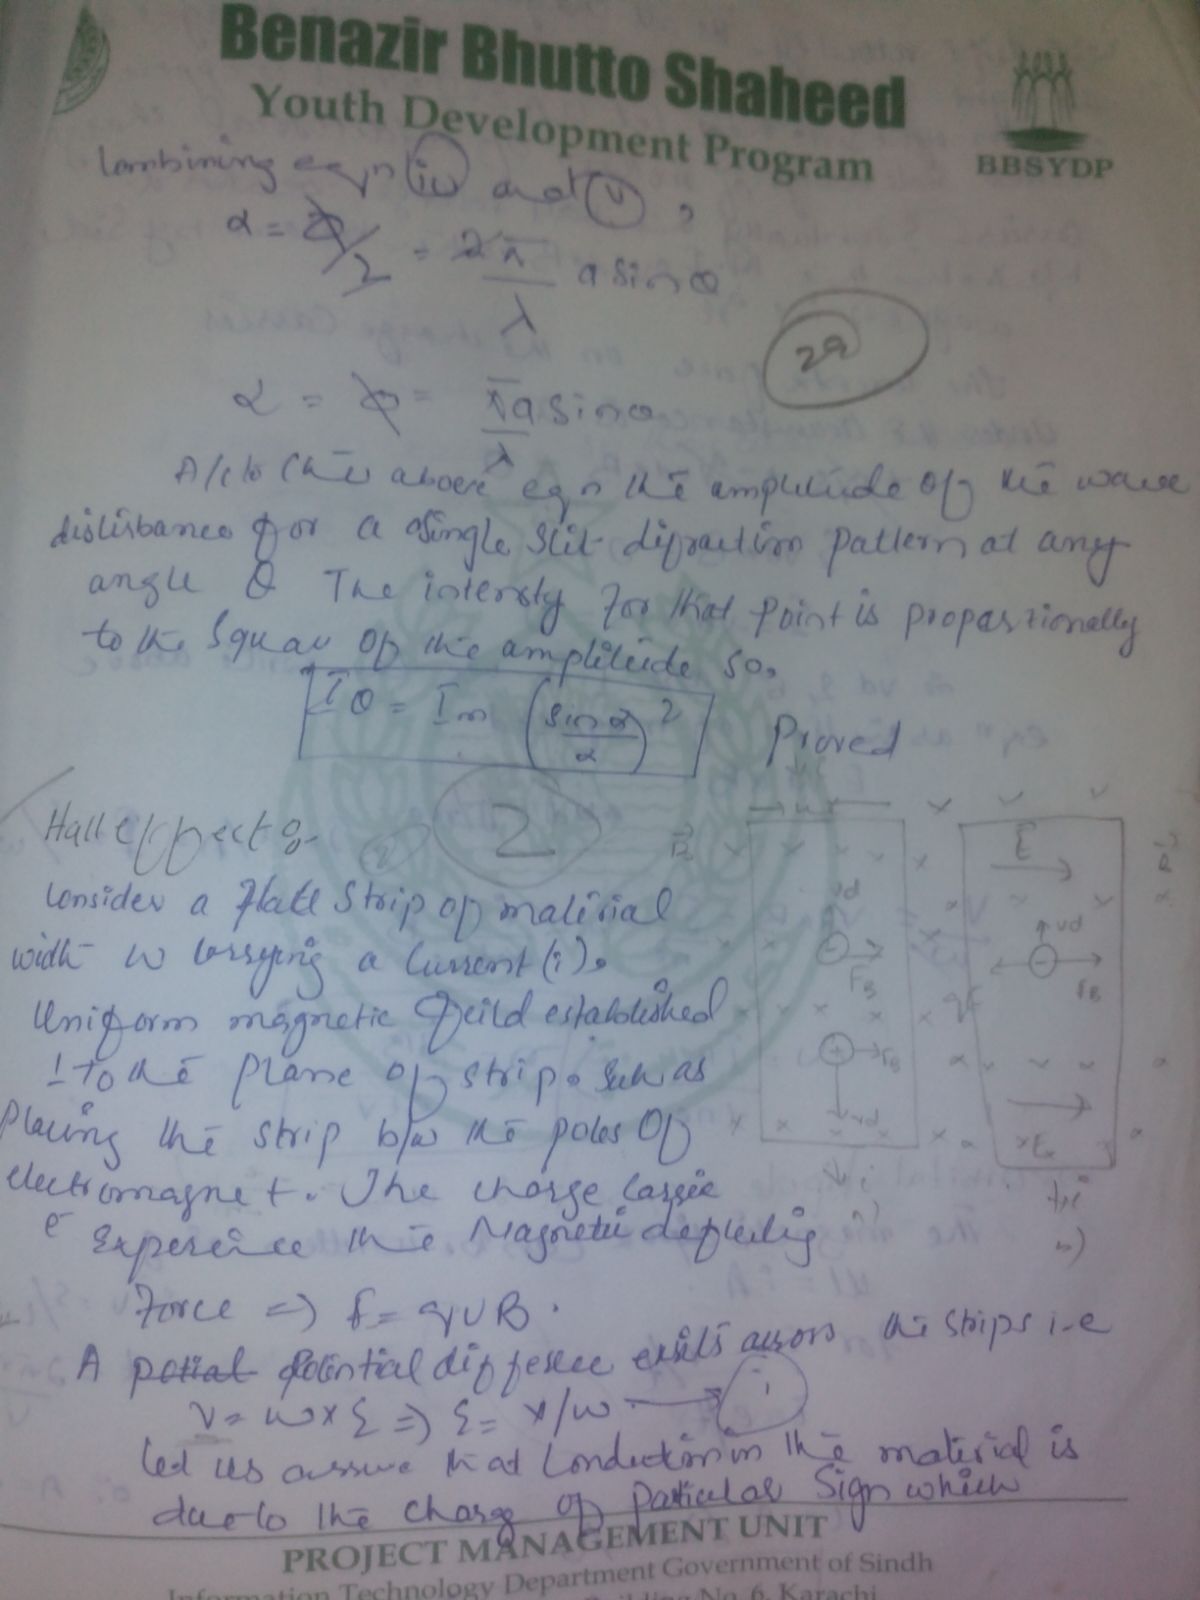 Benazir Bhutto Shaheed
Youth Development Program
BBSYDP
Combining eqn (iv) and (v),
α = ϕ/2 = 2π/λ a sinθ
29
α = ϕ = πa sinθ/λ
A/c to the above eqn the amplitude of the wave
distirbance for a single slit difraction pattern at any
angle θ The intensty for that point is propostionally
to the Squar of the amplitude so,
Iθ = Im (sin α/α)²
Proved
Hall effect:-
2
Consider a flatt Strip of material
with w carrying a Current (i).
Uniform magnetic feild established
⊥ to the plane of strip. Such as
Placing the strip b/w the poles Of
electromagnet. The charge Carrie
e⁻ Experence the Magnetic deflectig
Force => f = qvB.
A potential difference exists across the strips i.e
V = w x ξ => ξ = V/w → 1
Let us assume that Conduction in the material is
due to the charg of paticular Sign which
B
vd
FB
FB
vd
i
E
B
vd
qE
FB
E
i
b)
PROJECT MANAGEMENT UNIT
Information Technology Department Government of Sindh
Building No. 6, Karachi